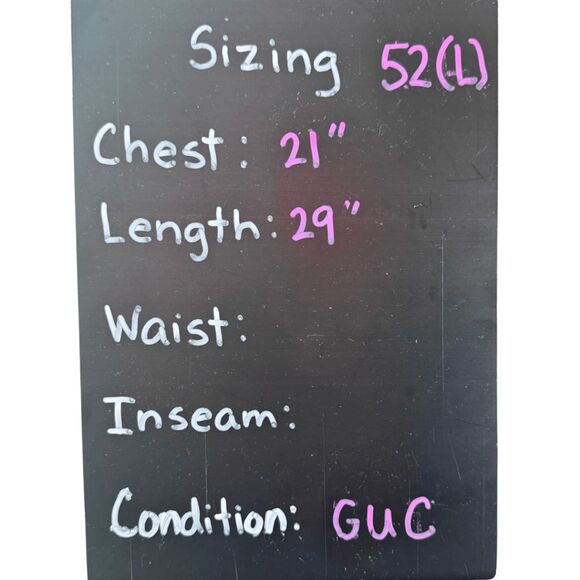 Sizing 52(L)
Chest: 21"
Length: 29"
Waist:
Inseam:
Condition: GUC